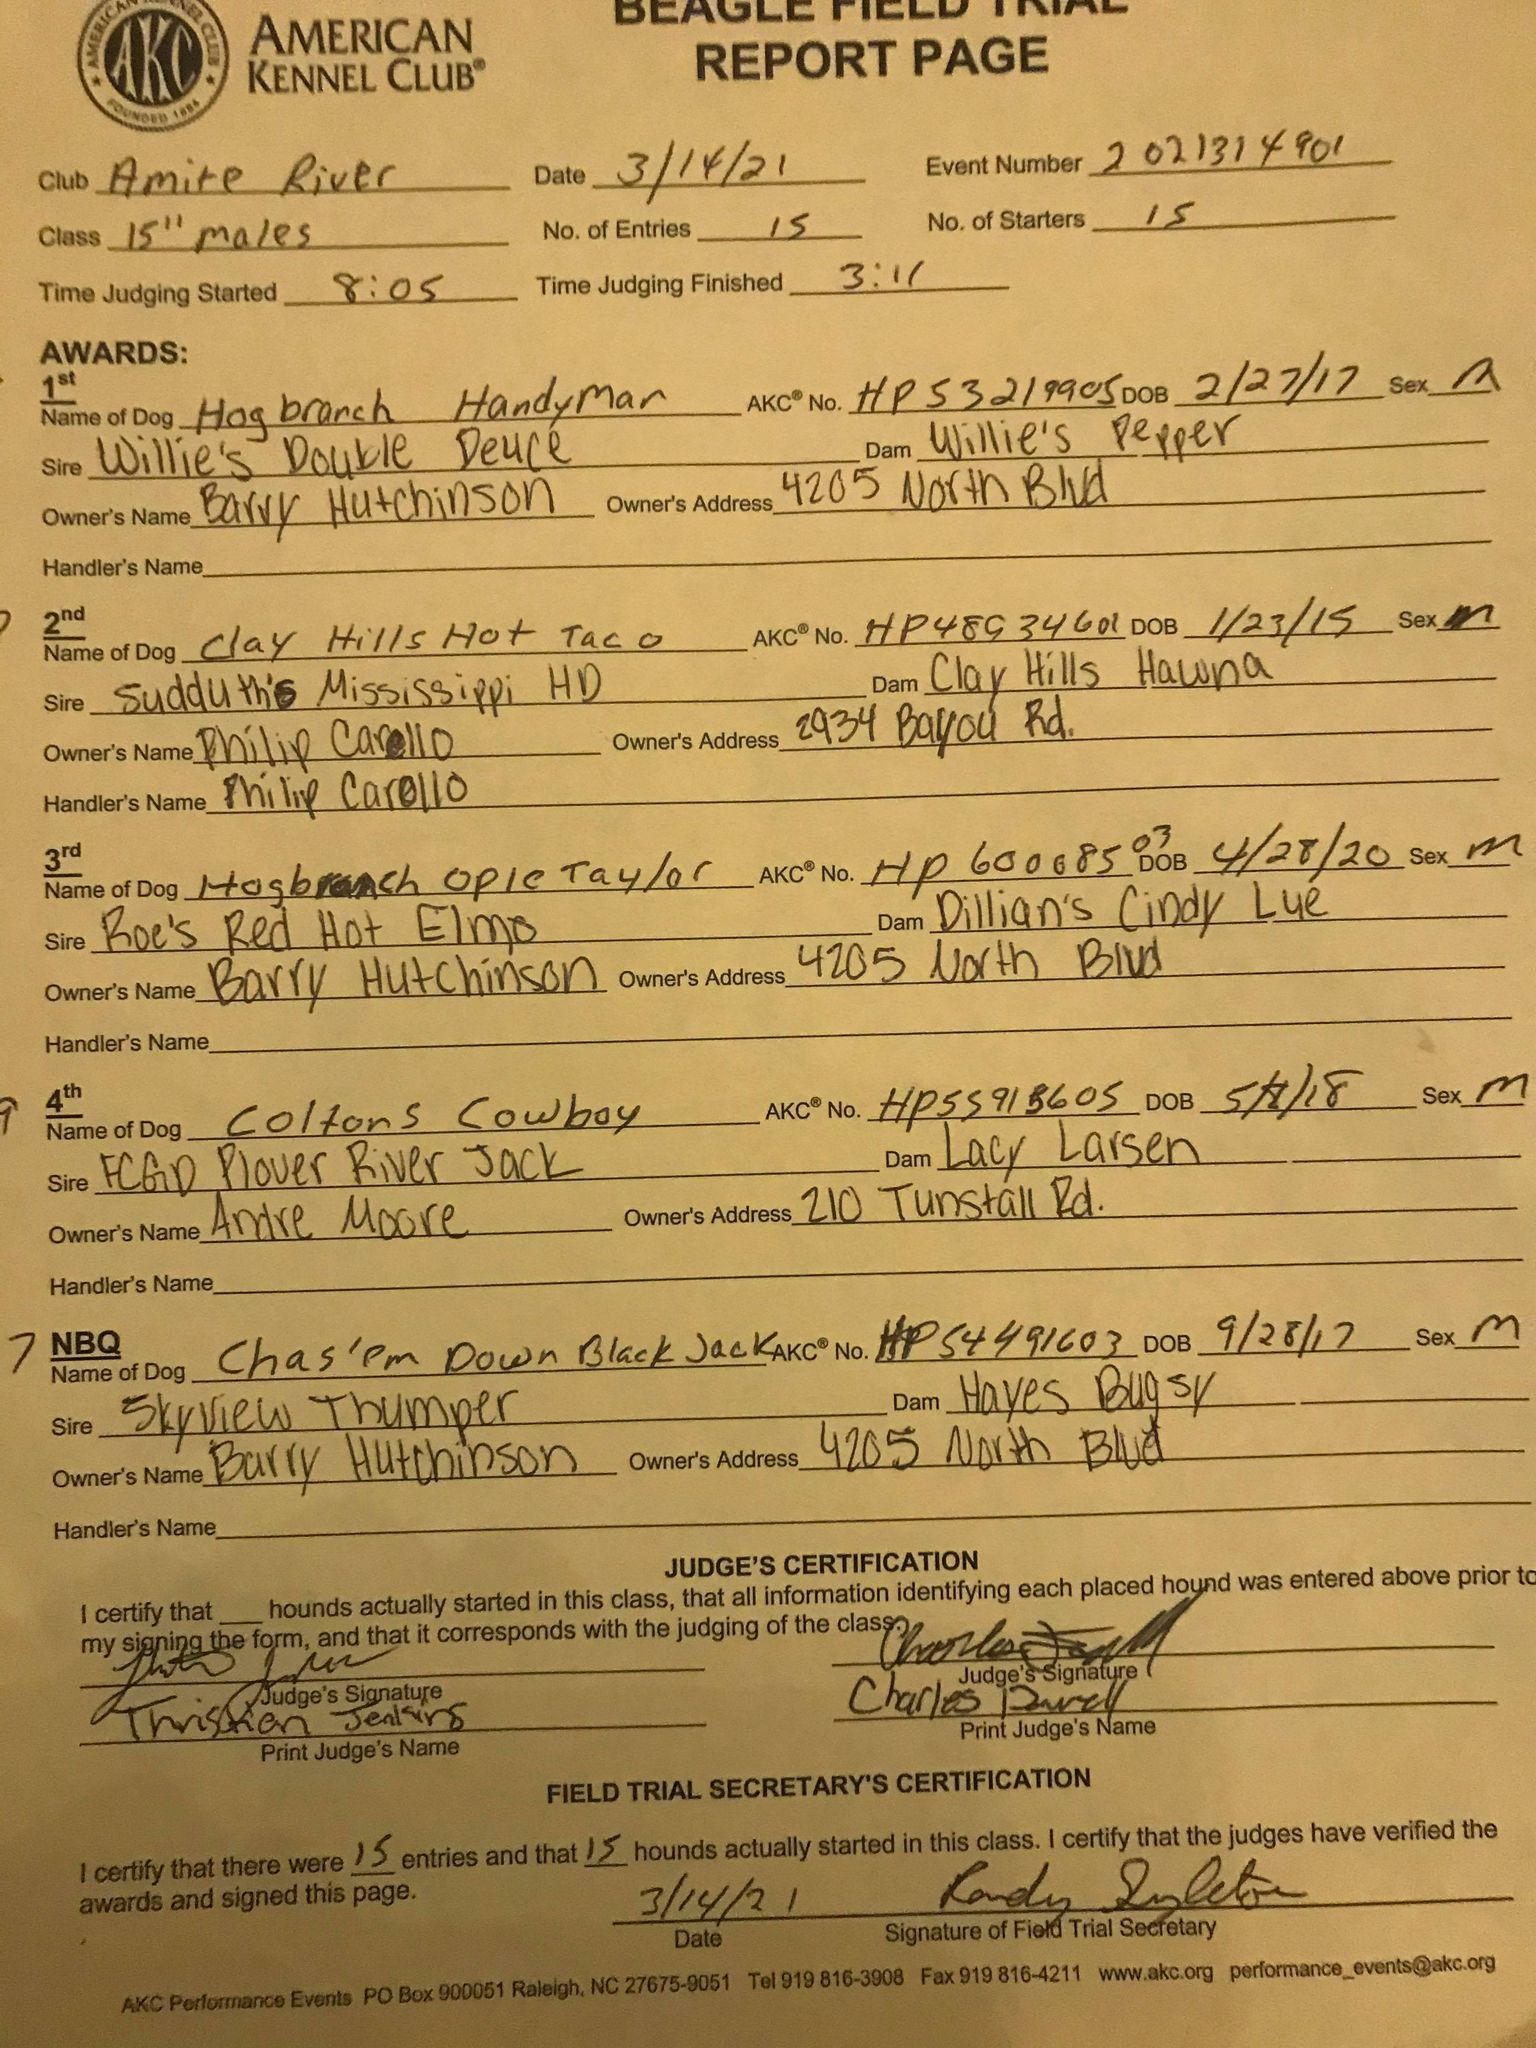 BEAGLE FIELD TRIAL
REPORT PAGE
AMERICAN KENNEL CLUB FOUNDED 1884
AKC
AMERICAN
KENNEL CLUB®
Club Amite River Date 3/14/21 Event Number 2021314901
Class 15" males No. of Entries 15 No. of Starters 15
Time Judging Started 8:05 Time Judging Finished 3:11
AWARDS:
1st
Name of Dog Hogbranch HandyMan AKC® No. HP53219905 DOB 2/27/17 Sex M
Sire Willie's Double Deuce Dam Willie's Pepper
Owner's Name Barry Hutchinson Owner's Address 4205 North Blvd
Handler's Name
2nd
Name of Dog Clay Hills Hot Taco AKC® No. HP48934601 DOB 1/23/15 Sex M
Sire Sudduth's Mississippi HD Dam Clay Hills
Owner's Name Philip Carollo Owner's Address 2934 Bayou Rd.
Handler's Name Philip Carollo
3rd
Name of Dog Hogbranch Opie Taylor AKC® No. HP 60068503 DOB 4/28/20 Sex M
Sire Roe's Red Hot Elmo Dam Dillian's Cindy Lue
Owner's Name Barry Hutchinson Owner's Address 4205 North Blvd
Handler's Name
9 4th
Name of Dog Coltons Cowboy AKC® No. HP55913605 DOB Sex M
Sire FCGD Plover River Jack Dam Lacy Larsen
Owner's Name Andre Moore Owner's Address 210 Tunstall Rd.
Handler's Name
7 NBQ
Name of Dog Chas'em Down Black Jack AKC® No. HP54491603 DOB 9/28/17 Sex M
Sire Skyview Thumper Dam Hayes Bugsy
Owner's Name Barry Hutchinson Owner's Address 4205 North Blvd
Handler's Name
JUDGE'S CERTIFICATION
I certify that ___ hounds actually started in this class, that all information identifying each placed hound was entered above prior to
my signing the form, and that it corresponds with the judging of the class.
Judge's Signature Judge's Signature
Jenkins Charles
Print Judge's Name Print Judge's Name
FIELD TRIAL SECRETARY'S CERTIFICATION
I certify that there were 15 entries and that 15 hounds actually started in this class. I certify that the judges have verified the
awards and signed this page.
3/14/21 Randy Singleton
Date Signature of Field Trial Secretary
AKC Performance Events PO Box 900051 Raleigh, NC 27675-9051 Tel 919 816-3908 Fax 919 816-4211 www.akc.org performance_events@akc.org